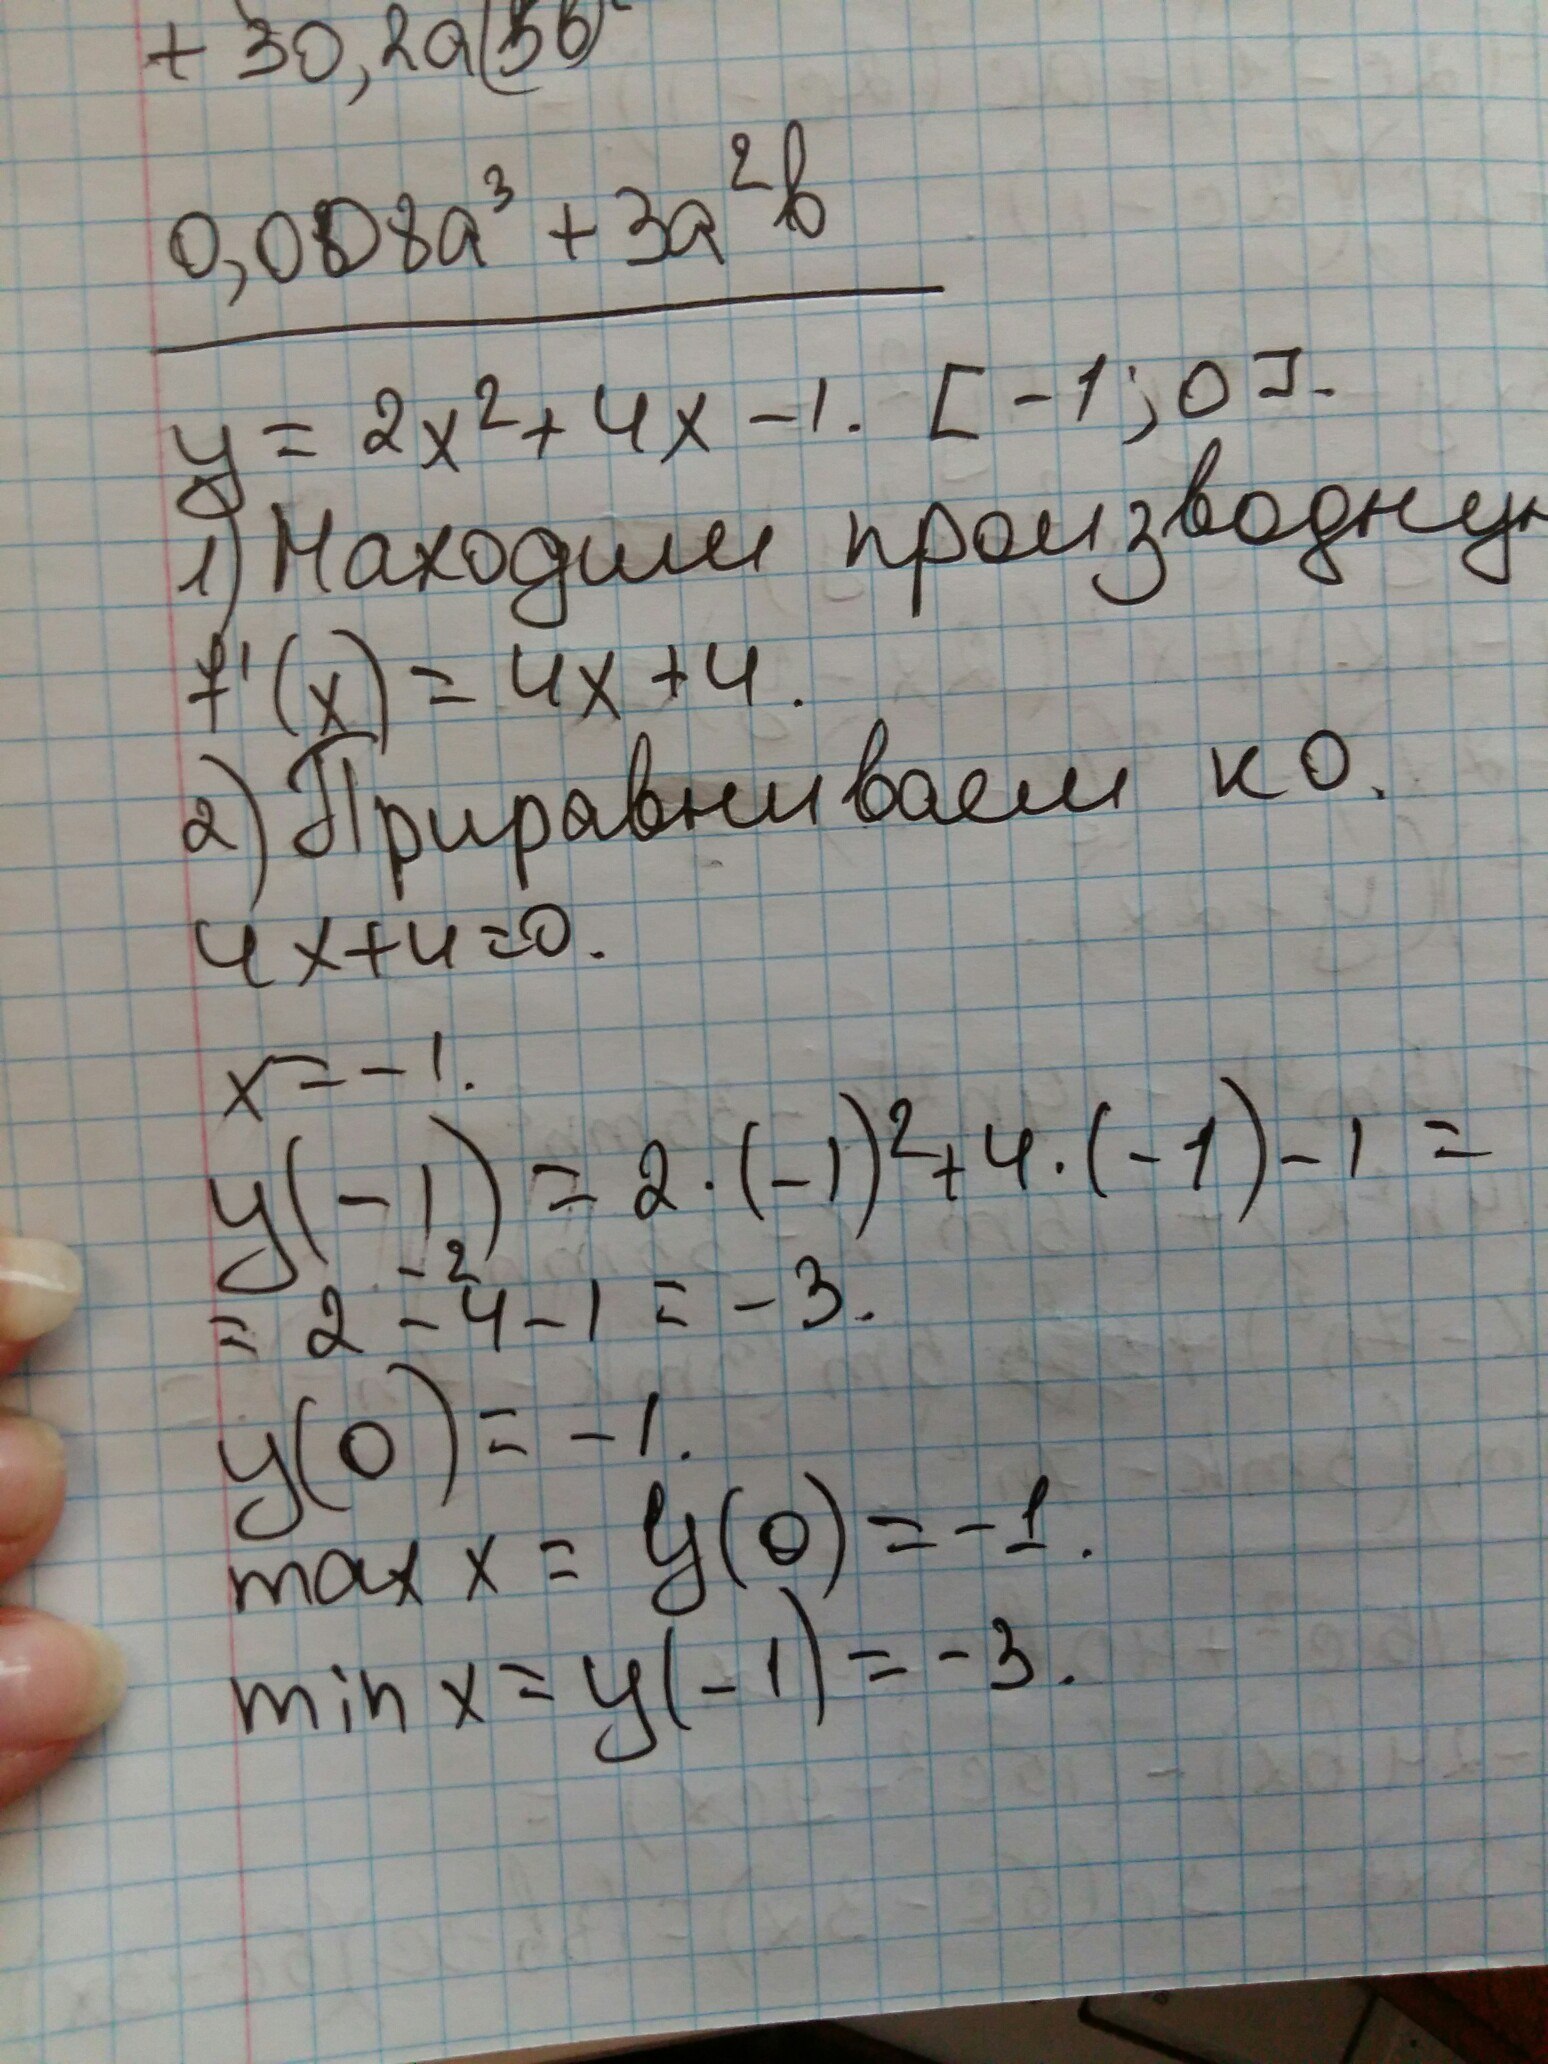 + 30,2a(5b)²
0,008a³ + 3a²b
y = 2x² + 4x - 1. [-1; 0].
1) Находим производну
f'(x) = 4x + 4.
2) Приравниваем к 0.
4x+4=0.
x = -1.
y(-1) = 2·(-1)² + 4·(-1) - 1 =
-2
= 2 - 4 - 1 = -3.
y(0) = -1.
max x = y(0) = -1.
min x = y(-1) = -3.